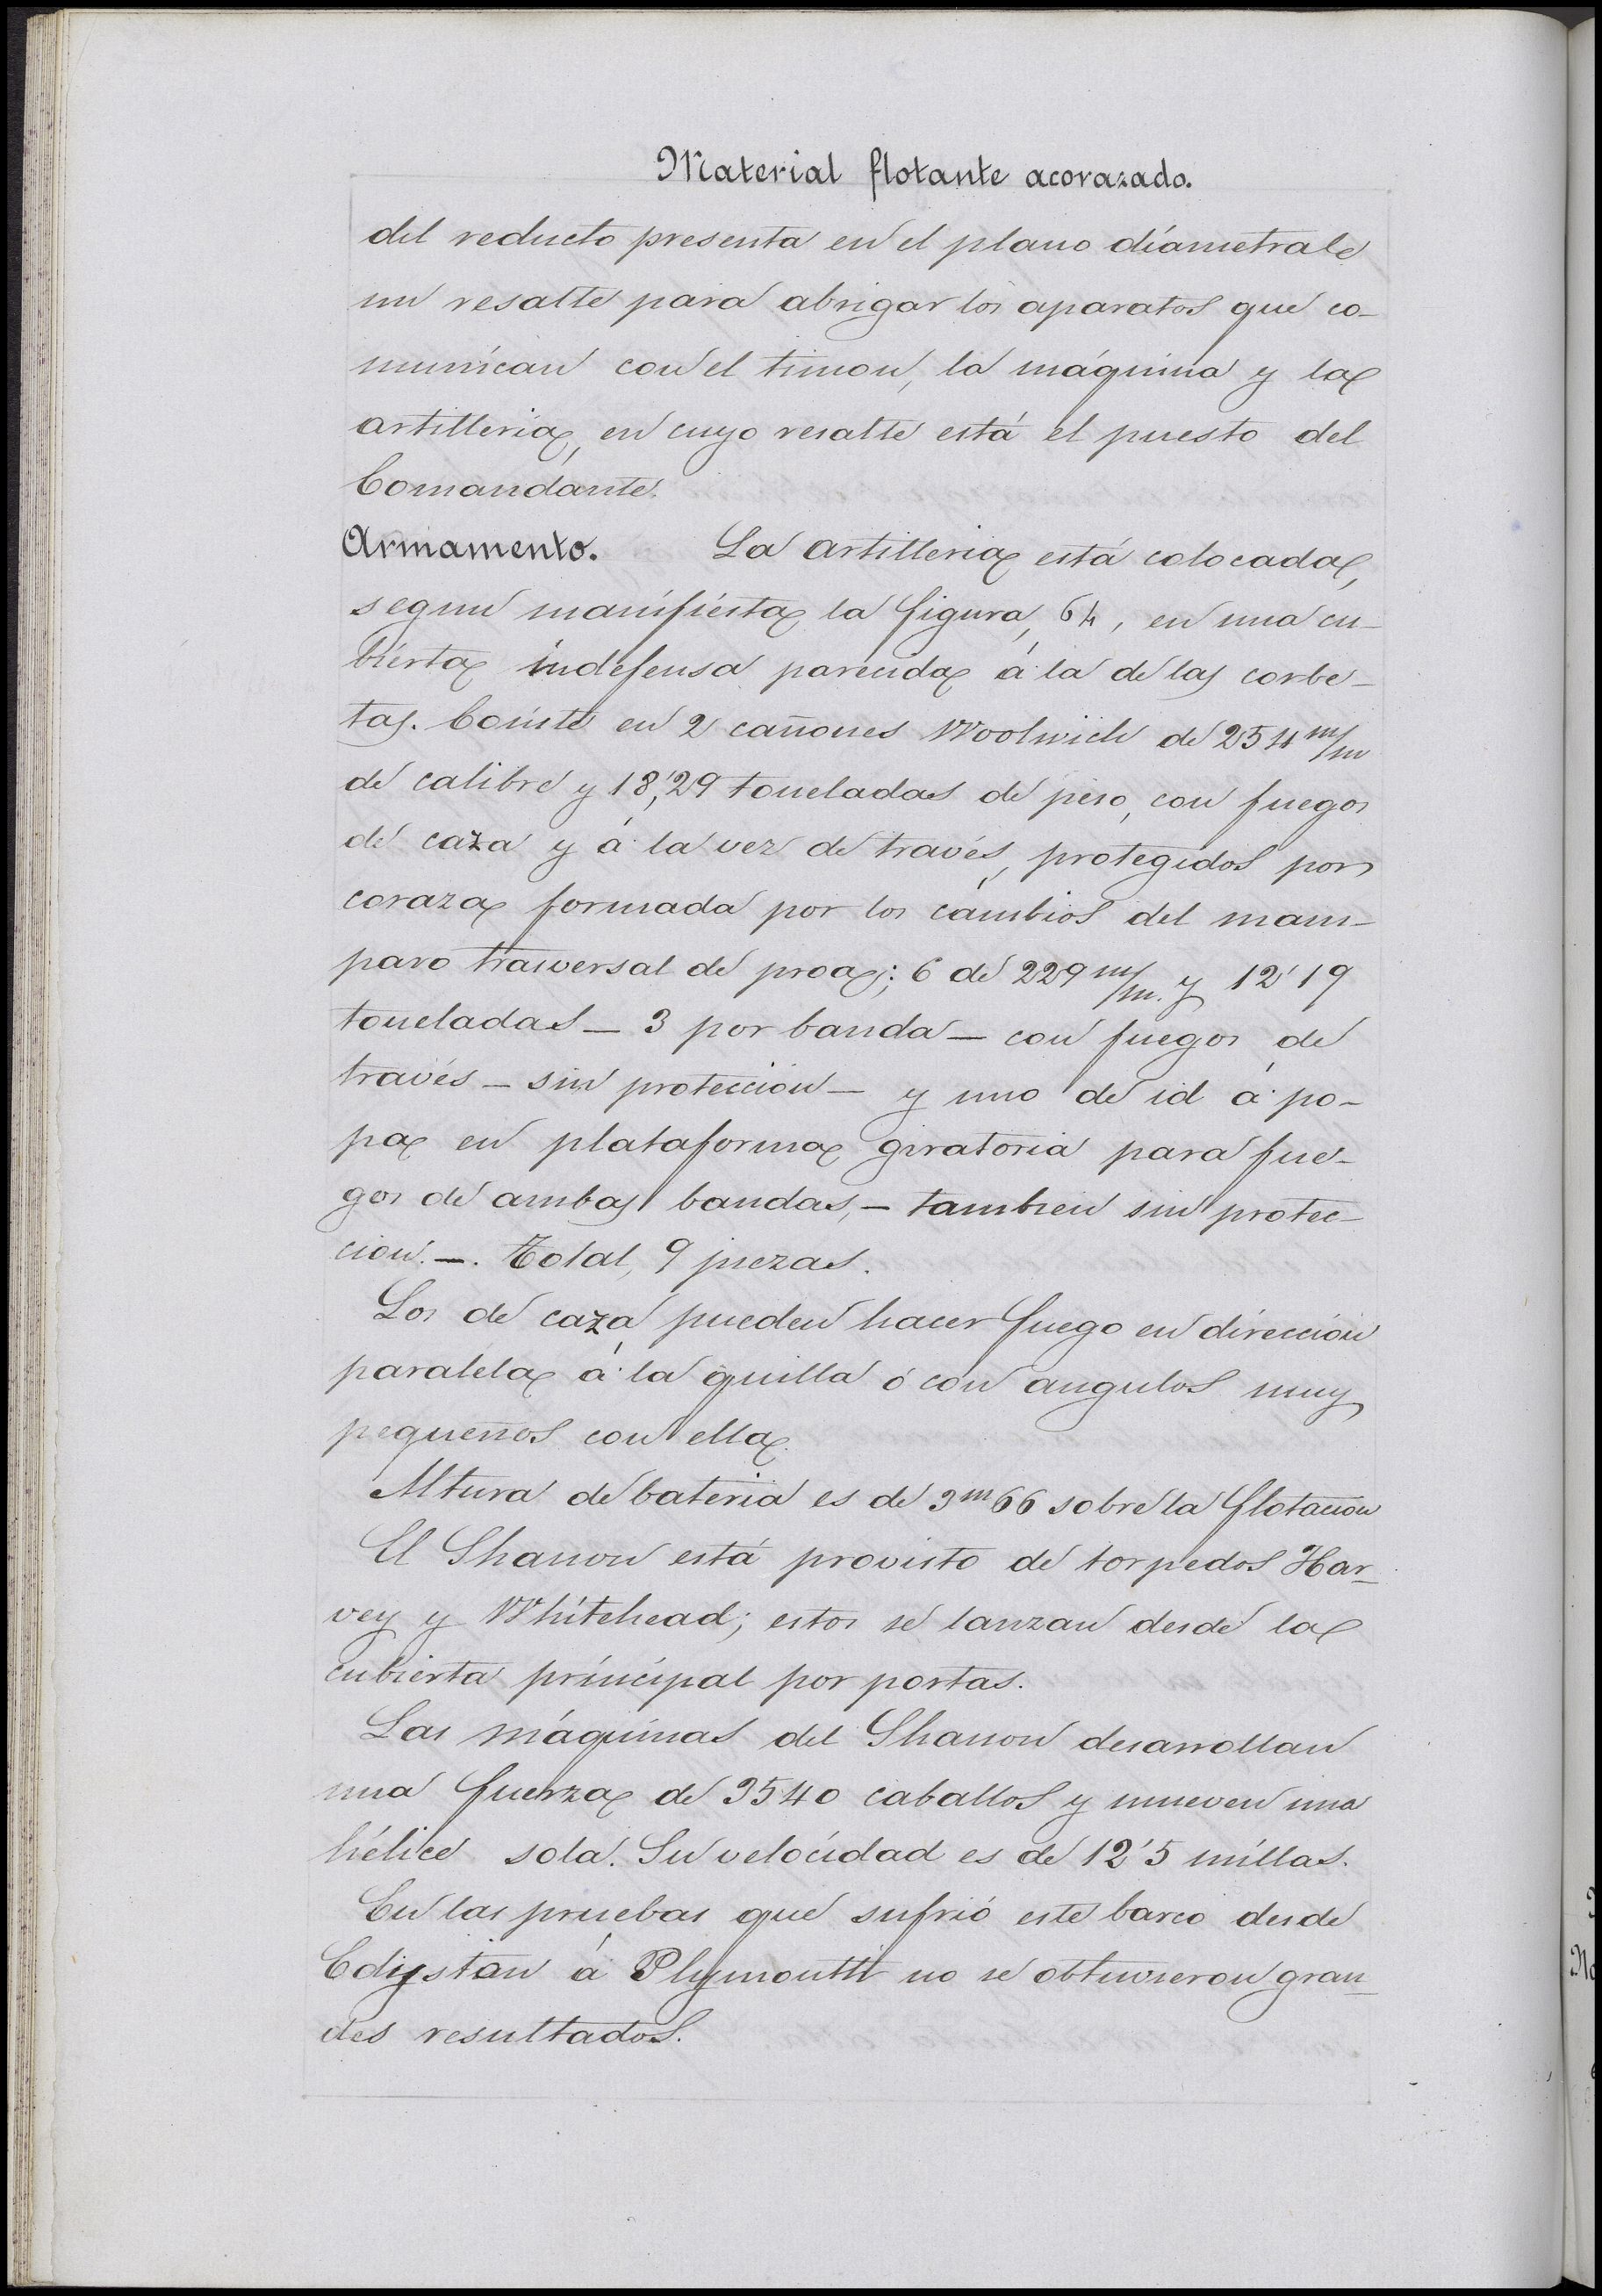 Material flotante acorazado.
del reducto presenta en el plano diametral
un resalte para abrigar los aparatos que co-
munican con el timon, la máquina y la
artilleria, en cuyo resalte está el puesto del
Comandante.
Armamento. La artilleria está colocada,
segun manifiesta la figura, 64, en una cu-
bierta indefensa parecida á la de las corbe-
tas. Consiste en 2 cañones Woolwich de 254 m/m
de calibre y 18,'29 toneladas de peso, con fuegos
de caza y á la vez de través, protegidos por
coraza formada por los cámbios del mam-
paro trasversal de proa; 6 de 229 m/m. y 12'19
toneladas - 3 por banda - con fuegos de
través - sin proteccion - y uno de id á po-
pa en plataforma giratoria para fue-
gos de ambas bandas, - tambien sin protec-
cion. -. Total, 9 piezas.
Los de caza pueden hacer fuego en direccion
paralela á la quilla ó con angulos muy
pequeños con ella.
Altura de bateria es de 3m66 sobre la flotacion
El Shanon está provisto de torpedos Har-
vey y Whitehead; estos se lanzan desde la
cubierta principal por portas.
Las máquinas del Shanon desarrollan
una fuerza de 3540 caballos y mueven una
hélice sola. Su velocidad es de 12'5 millas.
En las pruebas que sufrió este barco desde
Edystan á Plymoutti no se obtuvieron gran-
des resultados.